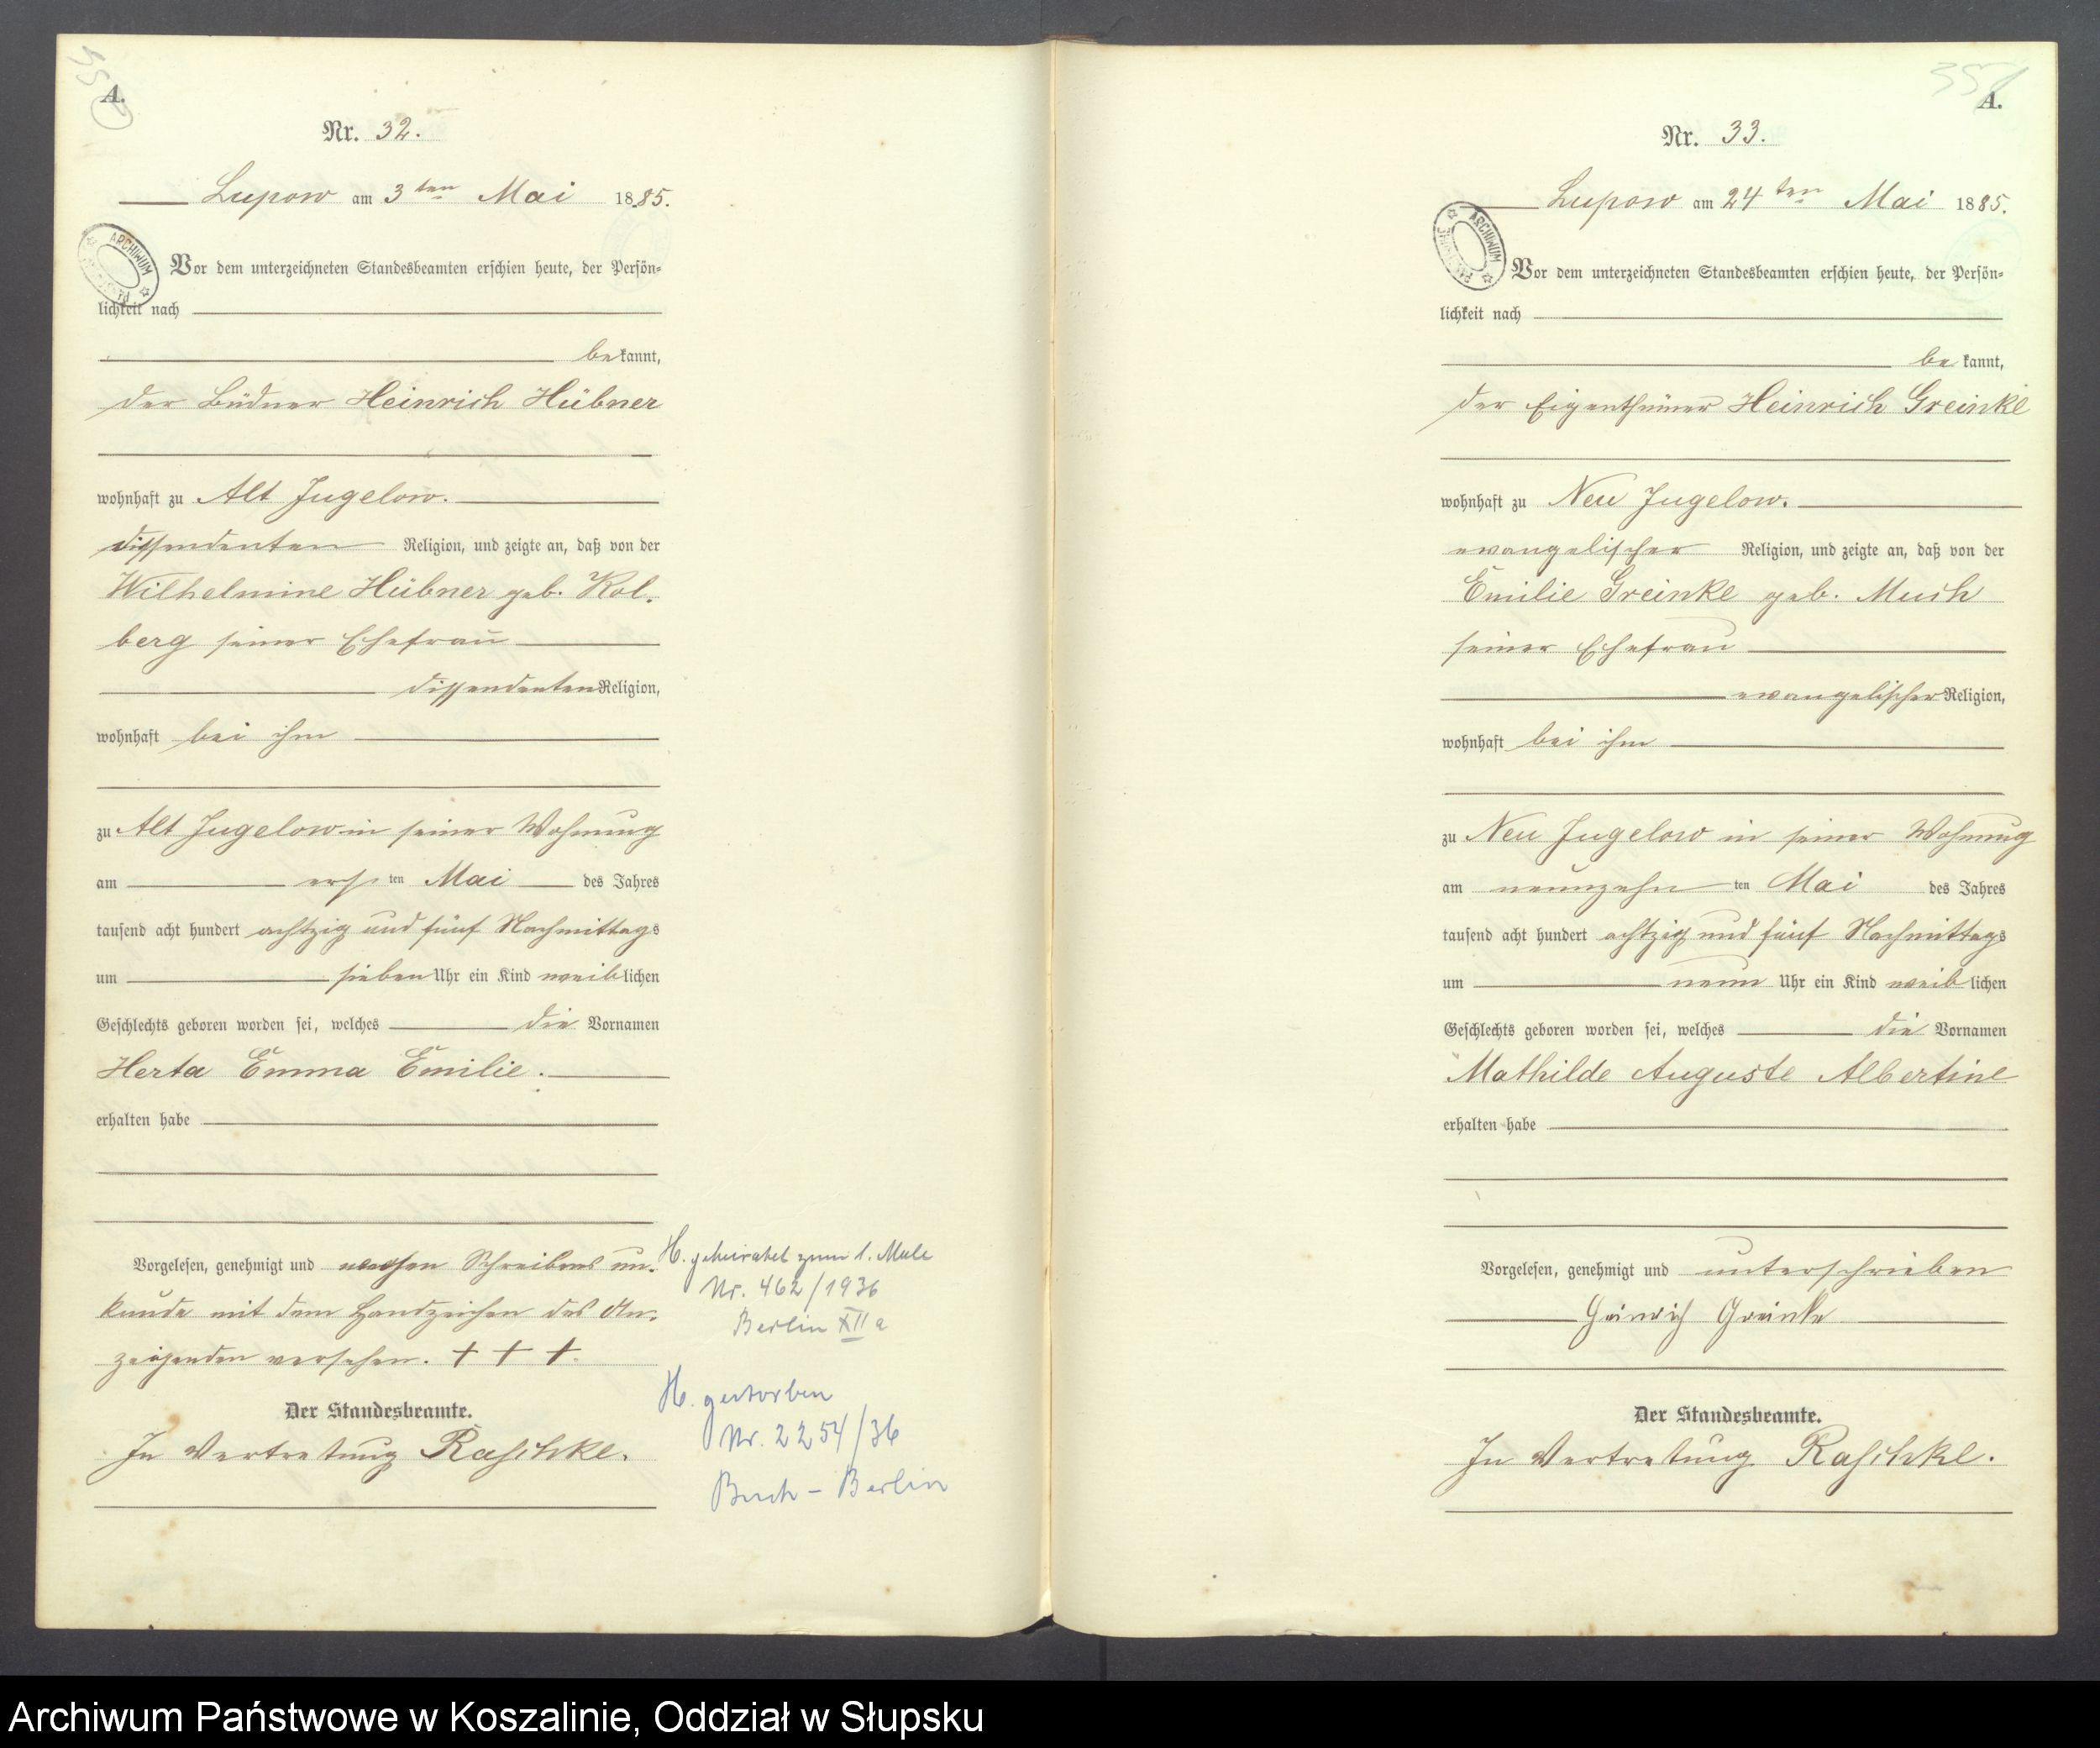 A.
Nr. 32.
Lupow am 3ten Mai 1885.
ARCHIWUM
Vor dem unterzeichneten Standesbeamten erschien heute, der Persön=
lichkeit nach
bekannt,
der Büdner Heinrich Hübner
wohnhaft zu Alt Jugelow.
dissendenten Religion, und zeigte an, daß von der
Wilhelmine Hübner geb. Kol.
berg seiner Ehefrau
dissendenten Religion,
wohnhaft bei ihm
zu Alt Jugelow in seiner Wohnung
am ersten Mai des Jahres
tausend acht hundert achtzig und fünf Nachmittags
um sieben Uhr ein Kind weiblichen
Geschlechts geboren worden sei, welches die Vornamen
Herta Emma Emilie.
erhalten habe
Vorgelesen, genehmigt und wegen Schreibens un.
kunde mit dem Handzeichen des An.
zeigenden versehen. + + +.
Der Standesbeamte.
In Vertretung Raschke.
H. geheiratet zum 1. Male
Nr. 462/1936
Berlin XII a
H. gestorben
Nr. 2254/36
Buch - Berlin
357
A.
Nr. 33.
Lupow am 24ten Mai 1885.
ARCHIWUM
Vor dem unterzeichneten Standesbeamten erschien heute, der Persön=
lichkeit nach
bekannt,
der Eigenthümer Heinrich Greinke
wohnhaft zu Neu Jugelow.
evangelischer Religion, und zeigte an, daß von der
Emilie Greinke geb. Much
seiner Ehefrau
evangelischer Religion,
wohnhaft bei ihm
zu Neu Jugelow in seiner Wohnung
am neunzehnten Mai des Jahres
tausend acht hundert achtzig und fünf Nachmittags
um neun Uhr ein Kind weiblichen
Geschlechts geboren worden sei, welches die Vornamen
Mathilde Auguste Albertine
erhalten habe
Vorgelesen, genehmigt und unterschrieben
Heinrich Greinke
Der Standesbeamte.
In Vertretung Raschke.
Archiwum Państwowe w Koszalinie, Oddział w Słupsku